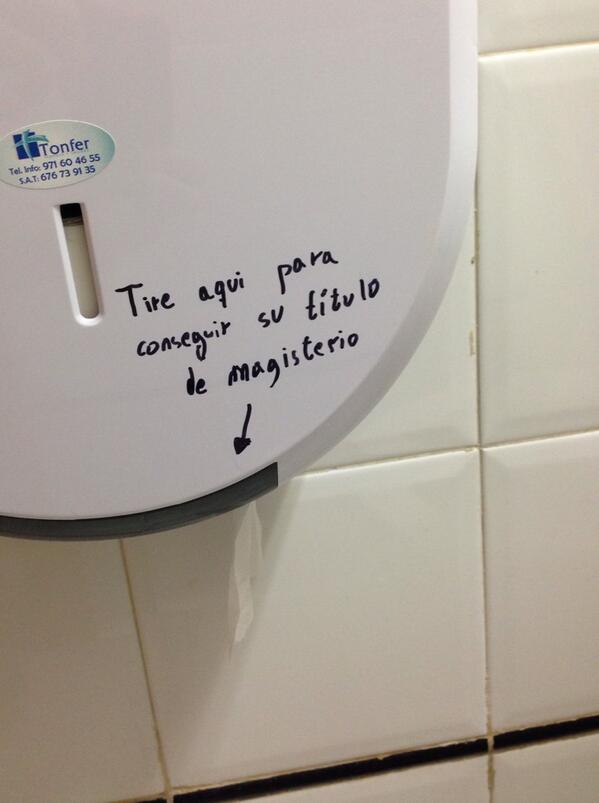 Tonfer
Tel. Info: 971 60 46 55
S.A.T: 676 73 91 35
Tire aqui para
conseguir su título
de magisterio